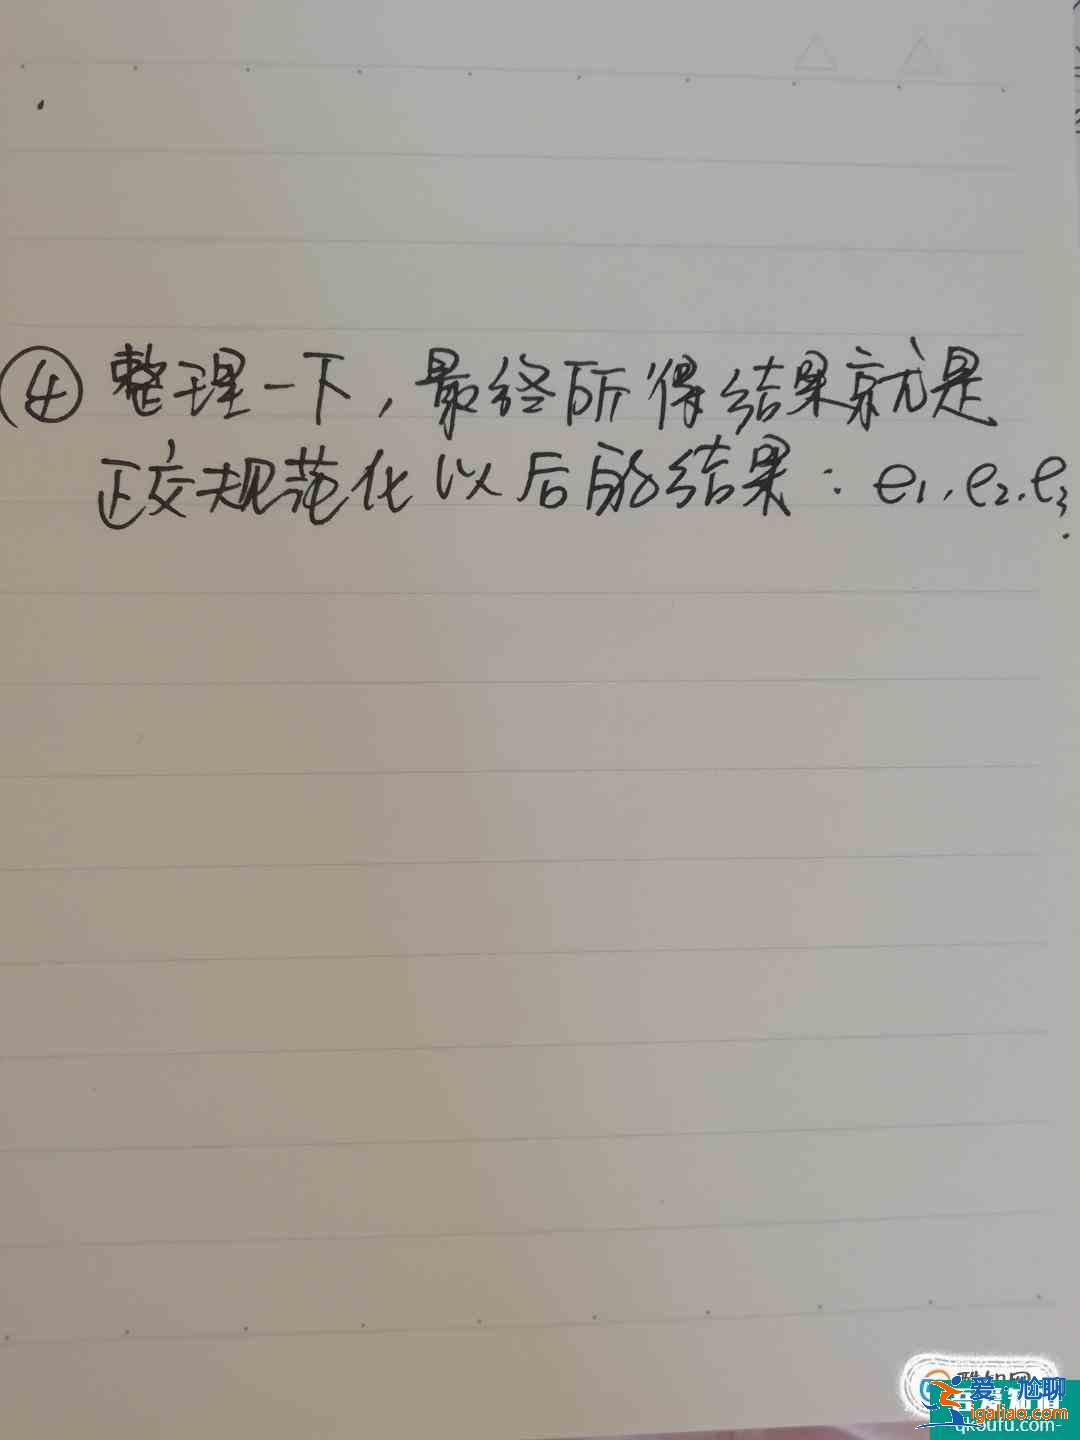 ④ 整理一下,最终所得结果就是
正交规范化以后的结果:e₁,e₂,e₃.
爱尬聊
igaliao.com
qkoufu.com